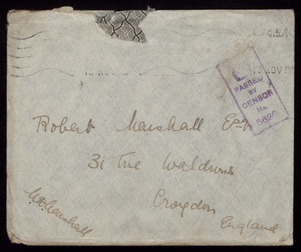 NOV
PASSED
BY
CENSOR
No.
Robert Marshall Esq
31 The Waldrons
Croydon
England